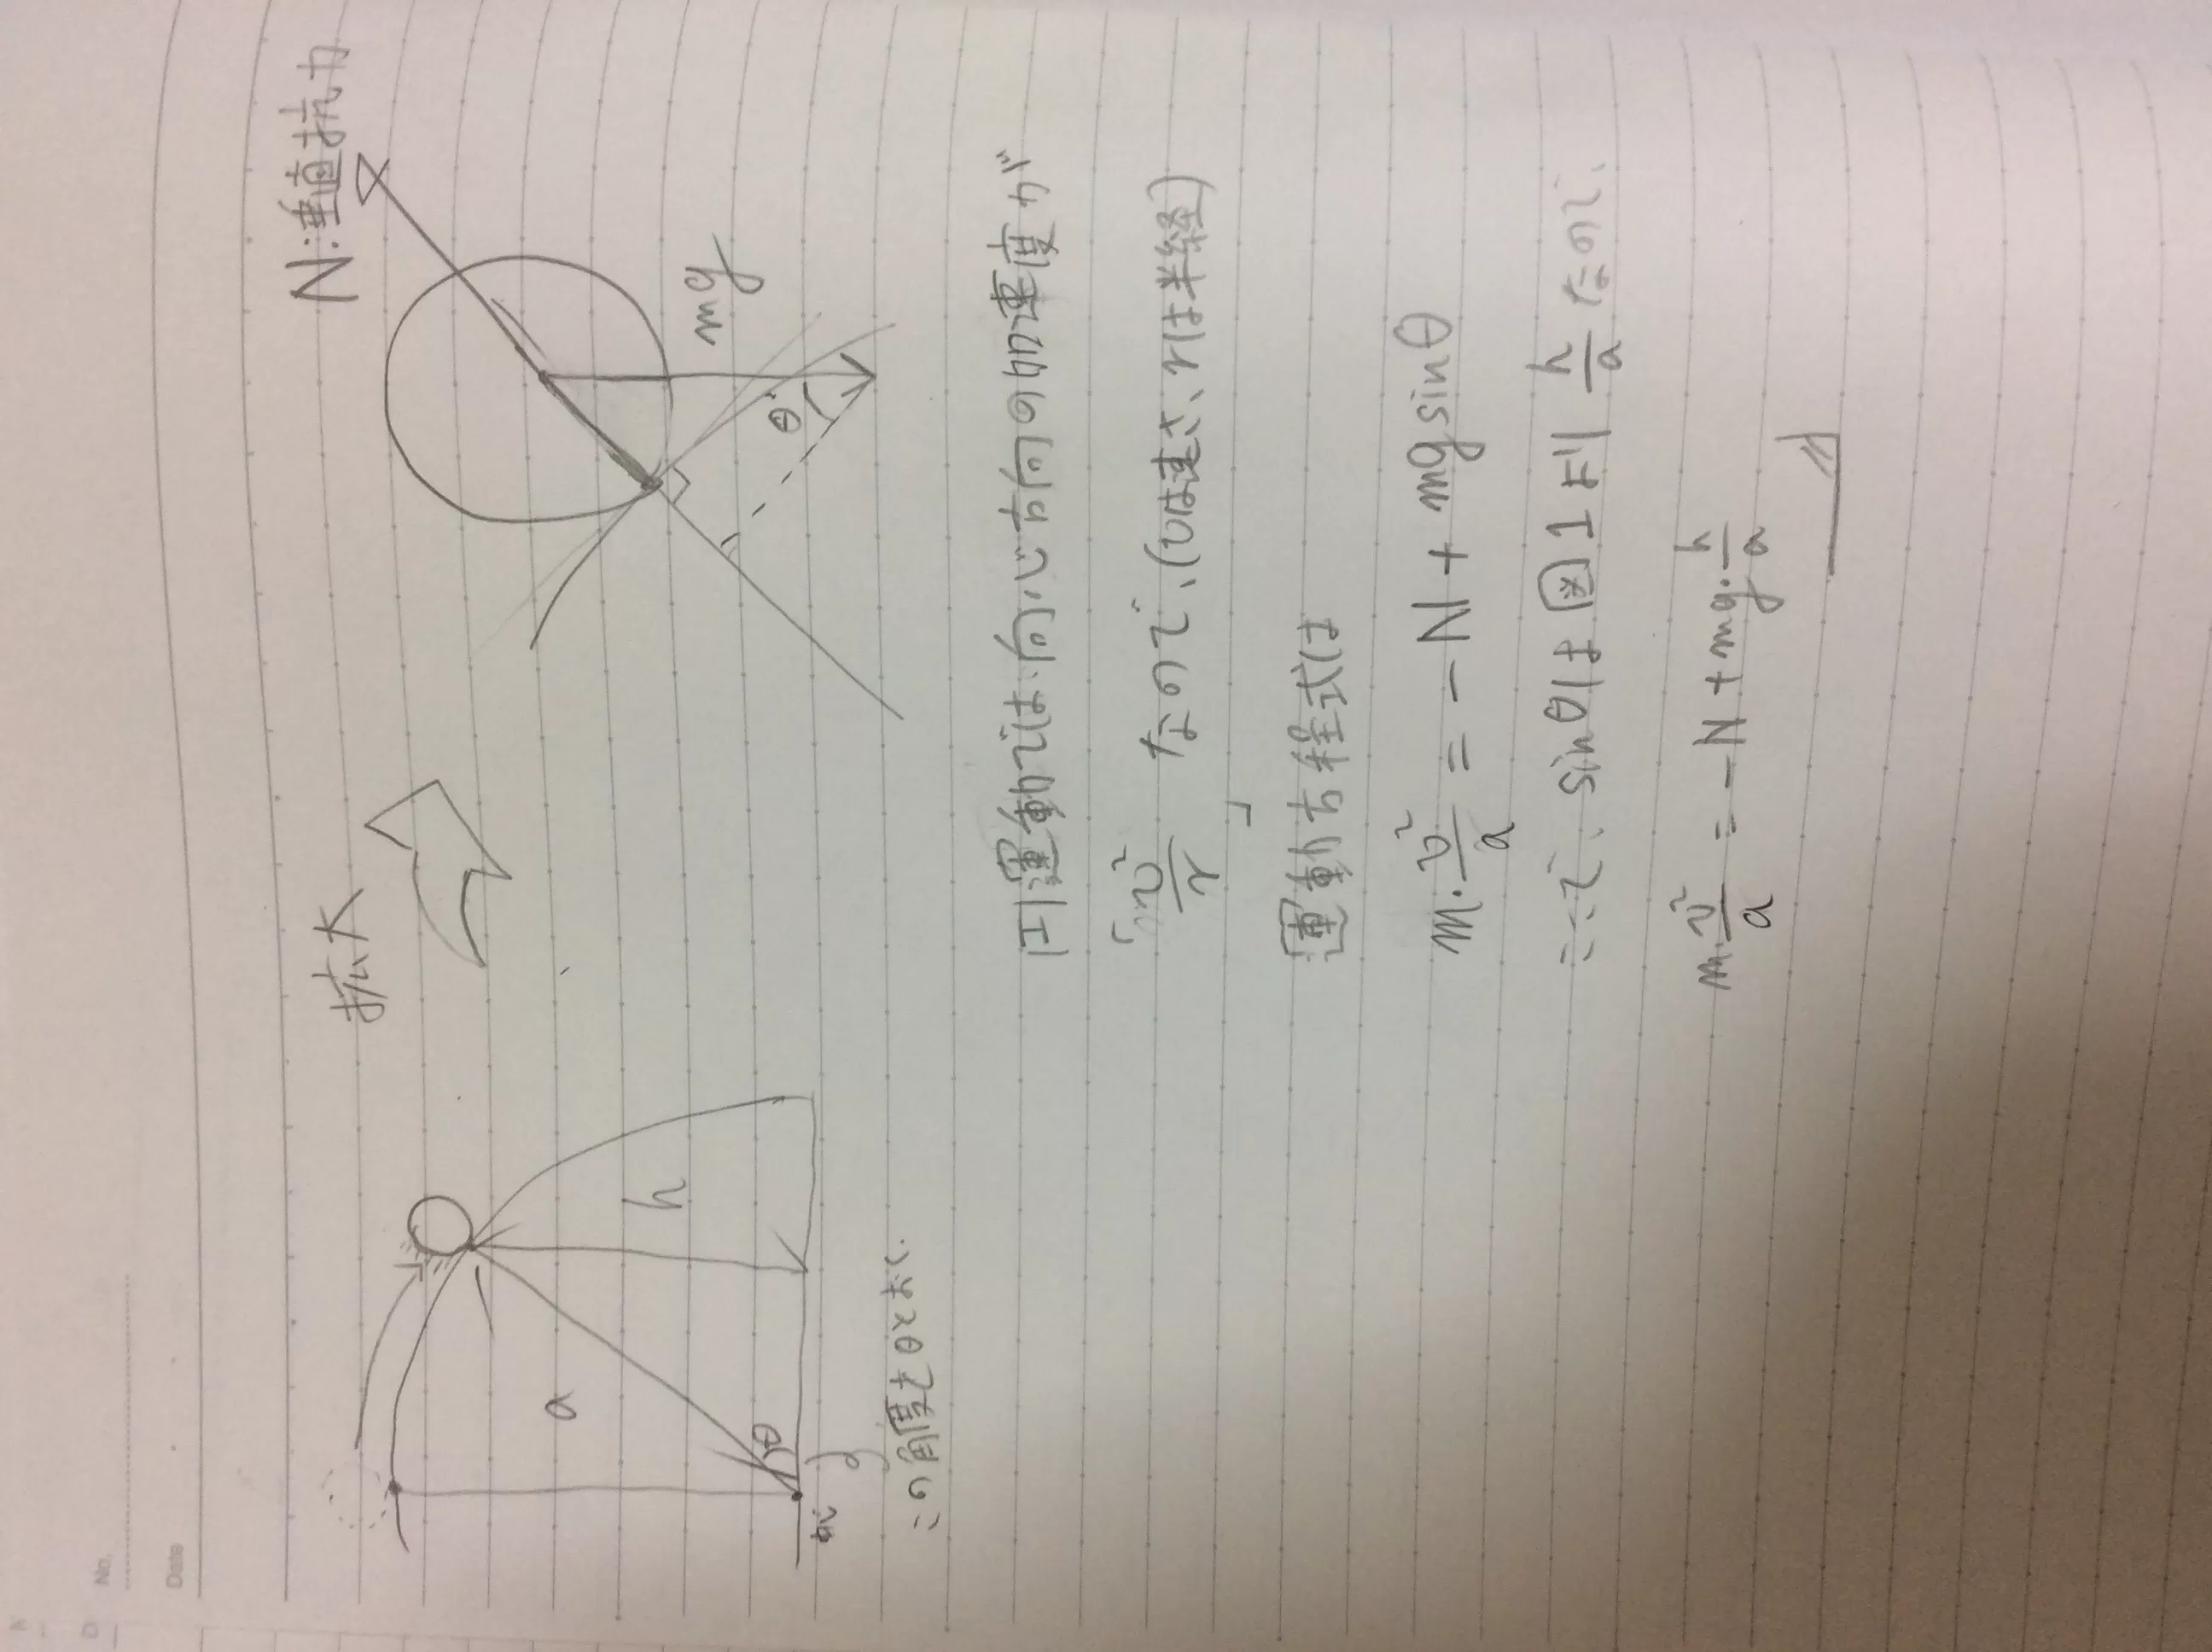 No.
Date
拡大
N:垂直抗力
mg
θ
a
h
θ
中心
この角度をθと木く
円運動では、向心方向の加速度が
「m v²/r なので、(vは速さ、rは半径)
」
運動方程式は
m・v²/a = -N + mg sinθ
ここで、sinθは図1より h/a なので、
m v²/a = -N + mg・h/a